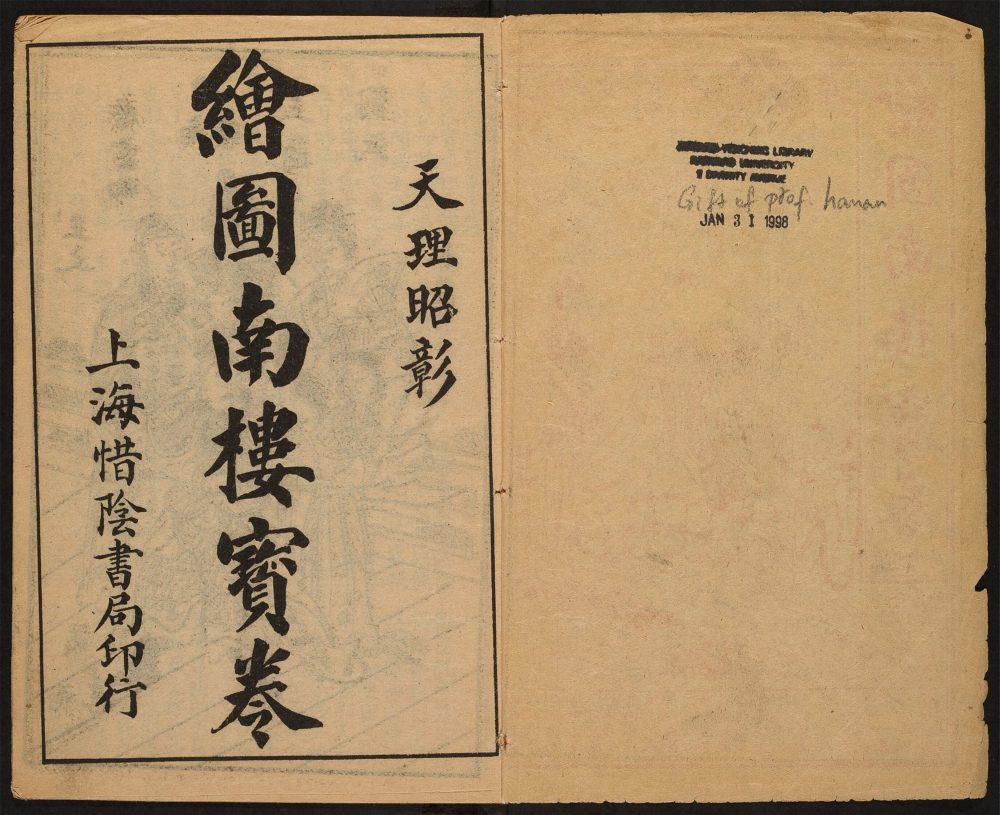 天理昭彰
繪圖南樓寳卷
上海惜陰書局印行
HARVARD-YENCHING LIBRARY
HARVARD UNIVERSITY
2 DIVINITY AVENUE
Gift of prof. hanan
JAN 31 1998